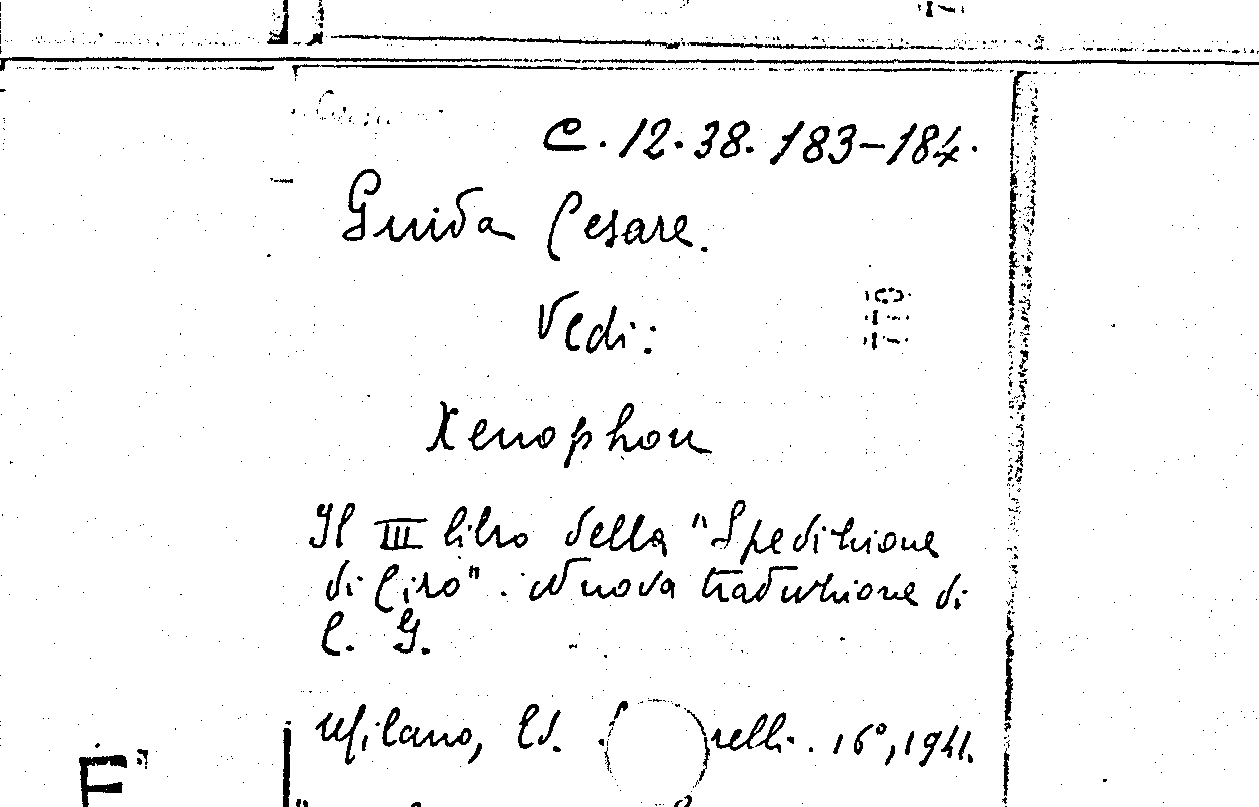 C. 12. 38. 183-184.
Guida Cesare.
Vedi:
Xenophon
Il III libro della "Spedizione
di Ciro". Nuova traduzione di
C. G.
Milano, Ed. relli. 16°, 1941.